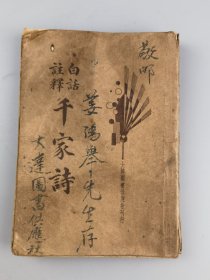 敬師
姜鴻舉先生存
白話
註釋
千家詩
大達圖書供應社